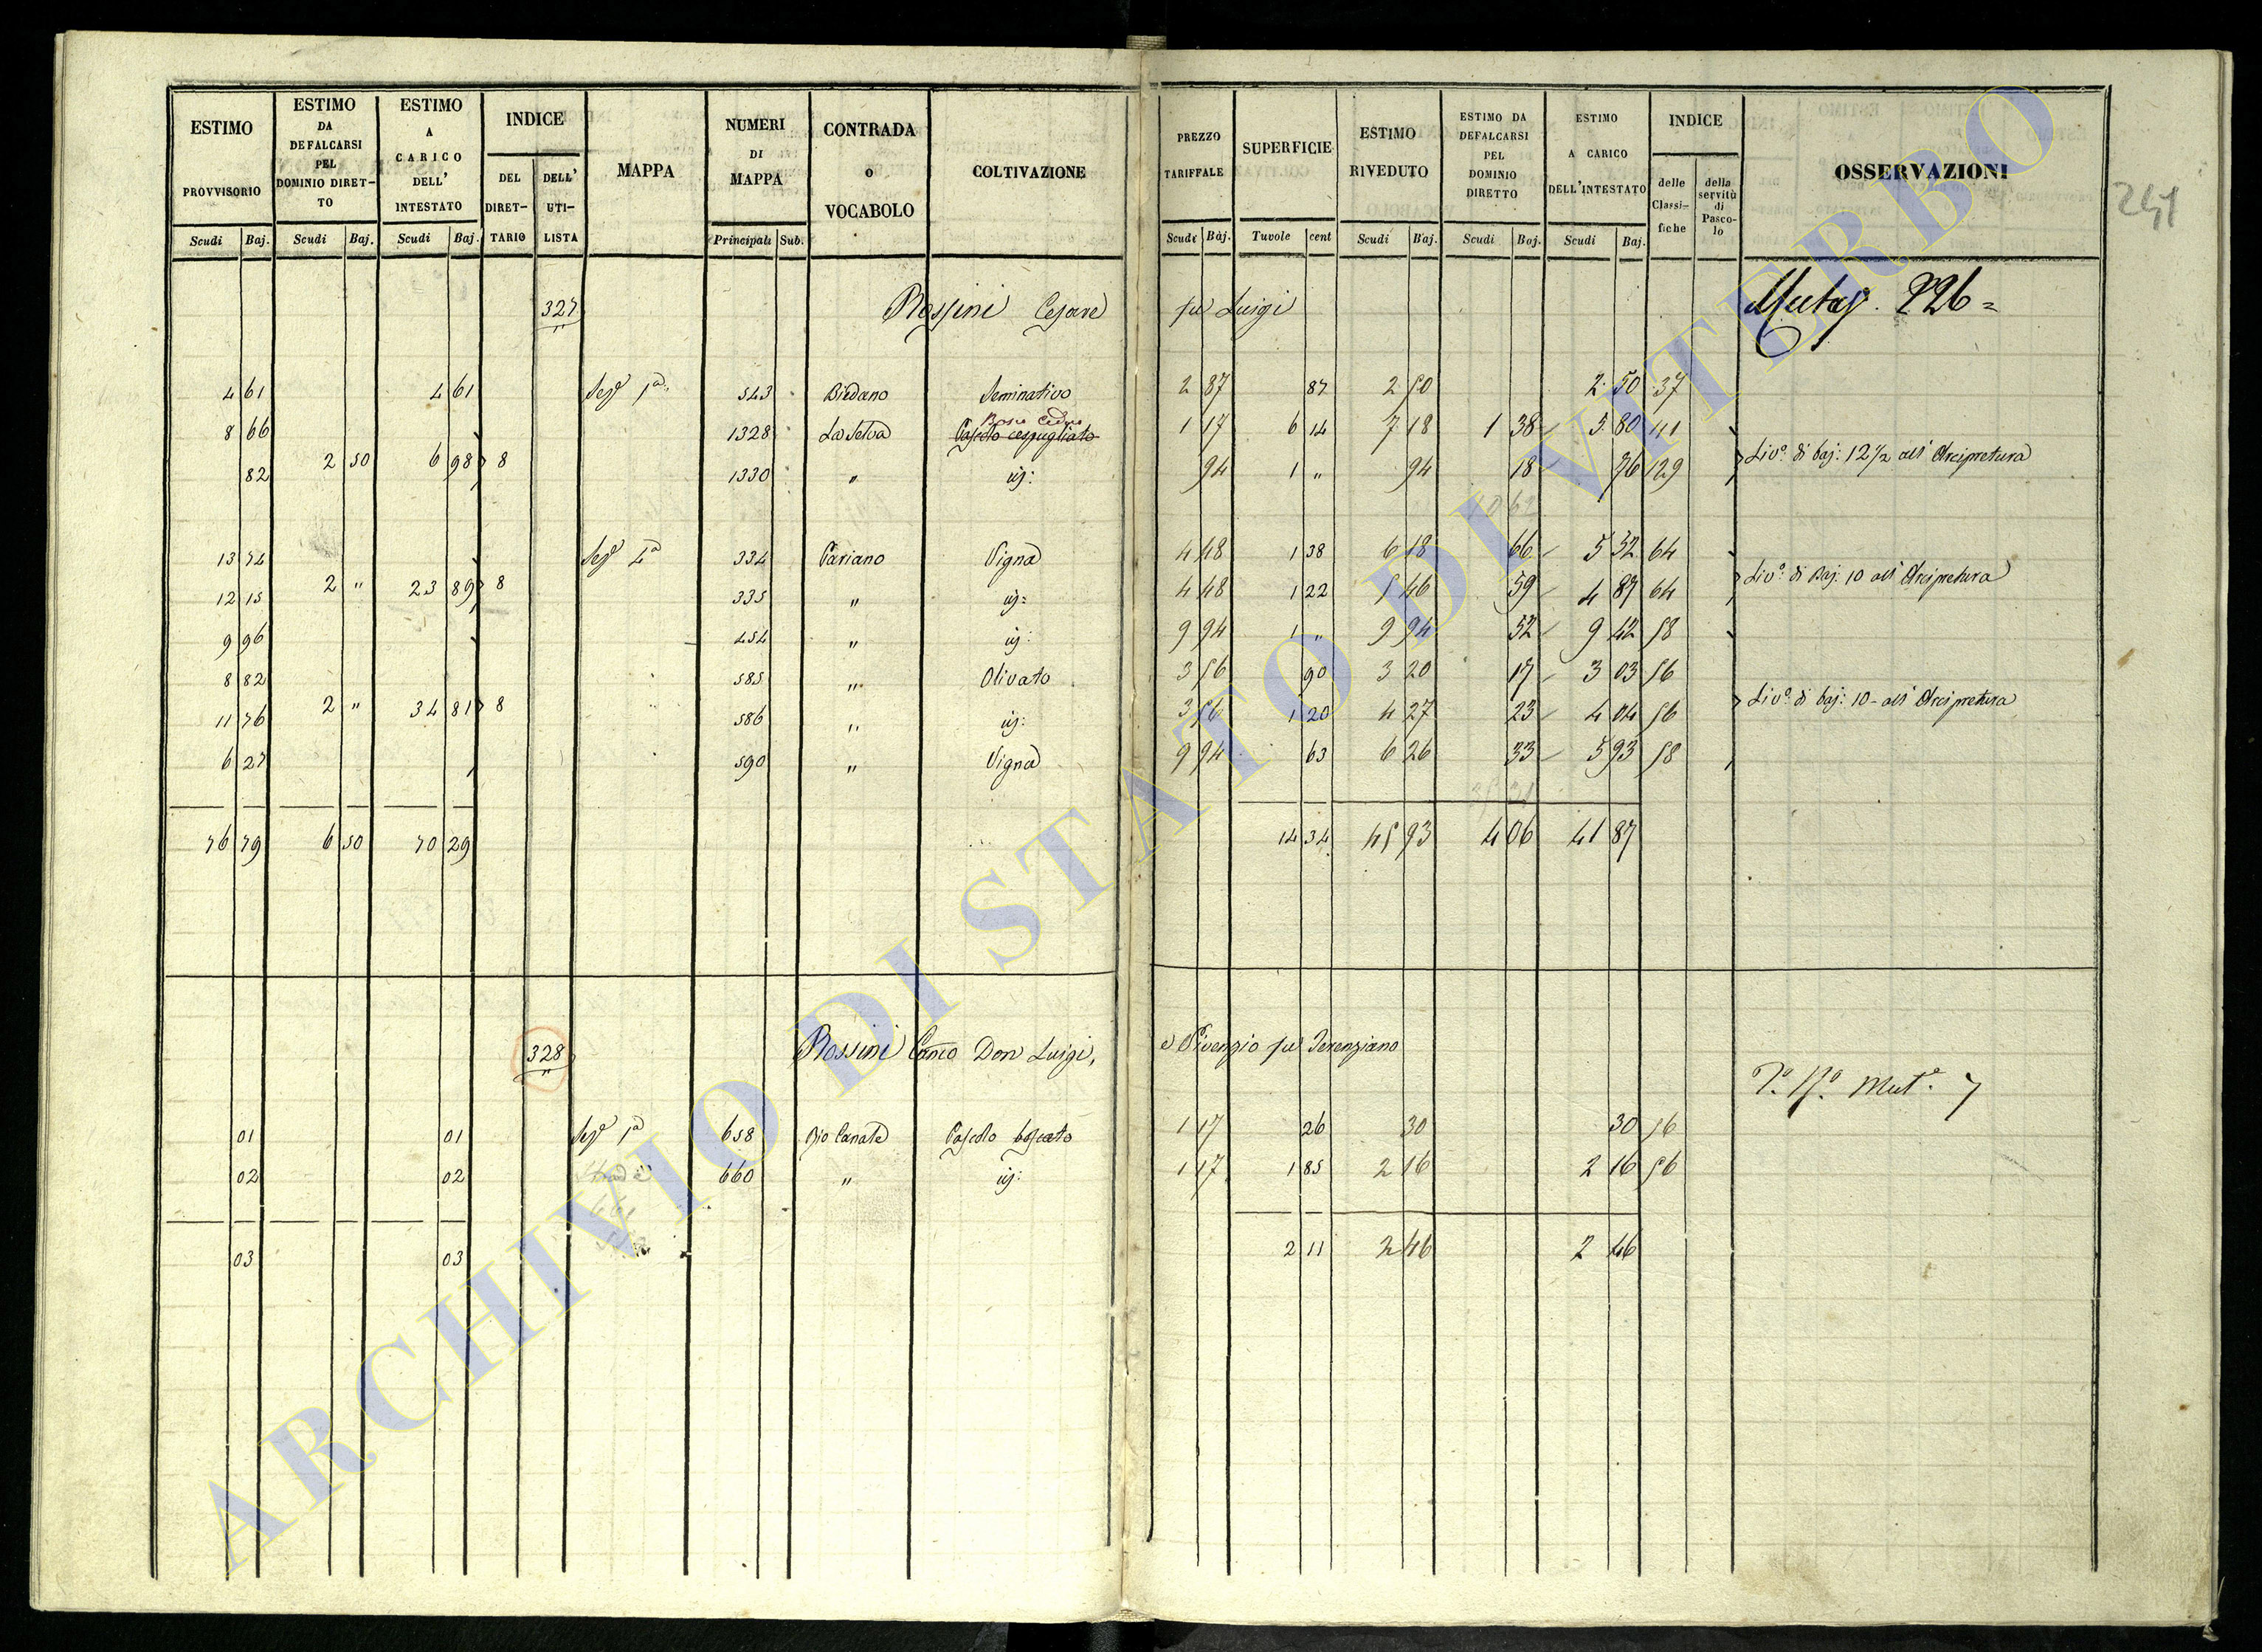 ESTIMO PROVVISORIO Scudi Baj. | ESTIMO DA DEFALCARSI PEL DOMINIO DIRETTO Scudi Baj. | ESTIMO A CARICO DELL' INTESTATO Scudi Baj. | INDICE DEL DIRETTARIO | DELL' UTILISTA | MAPPA | NUMERI DI MAPPA Principali Sub. | CONTRADA O VOCABOLO | COLTIVAZIONE | PREZZO TARIFFALE Scudi Baj. | SUPERFICIE Tavole cent | ESTIMO RIVEDUTO Scudi Baj. | ESTIMO DA DEFALCARSI PEL DOMINIO DIRETTO Scudi Baj. | ESTIMO A CARICO DELL'INTESTATO Scudi Baj. | INDICE delle Classifiche | della servitù di Pascolo | OSSERVAZIONI
241
327 Rossini Cesare fu Luigi Mutaz. 226=
4 61 4 61 Sezе 1a 543 Biedano Seminativo 2 87 87 2 50 2 50 37
Bosco Ceduo
8 66 1328 La Selva Pascolo cespugliato 1 17 6 14 7 18 1 38 5 80 41
2 50 6 98 8 Livo. di baj: 12 1/2 all' Arcipretura
82 1330 " id: 94 1 " 94 18 76 129
13 74 Seze 4a 334 Pariano Vigna 4 48 1 38 6 18 66 5 32 64
2 " 23 89 8 Livo. di Baj. 10 all' Arcipretura
12 15 335 " id: 4 48 1 22 5 46 59 4 87 64
9 96 454 " id: 9 94 1 " 9 94 52 9 42 58
8 82 585 " Olivato 3 56 90 3 20 17 3 03 56
2 " 34 81 8 Livo. di baj: 10 - all' Arcipretura
11 76 586 " id: 3 56 1 20 4 27 23 4 04 56
6 27 590 " Vigna 9 94 63 6 26 33 5 93 58
76 79 6 50 70 29 14 34 45 93 4 06 41 87
328 Rossini Canco Don Luigi, e Provenzio fu Terenziano
Mute. 7
01 01 Seze 1a 658 Rio Canale Pascolo boscato 1 17 26 30 30 56
02 02 660 " id: 1 17 1 85 2 16 2 16 56
03 03 2 11 2 46 2 46
ARCHIVIO DI STATO DI VITERBO